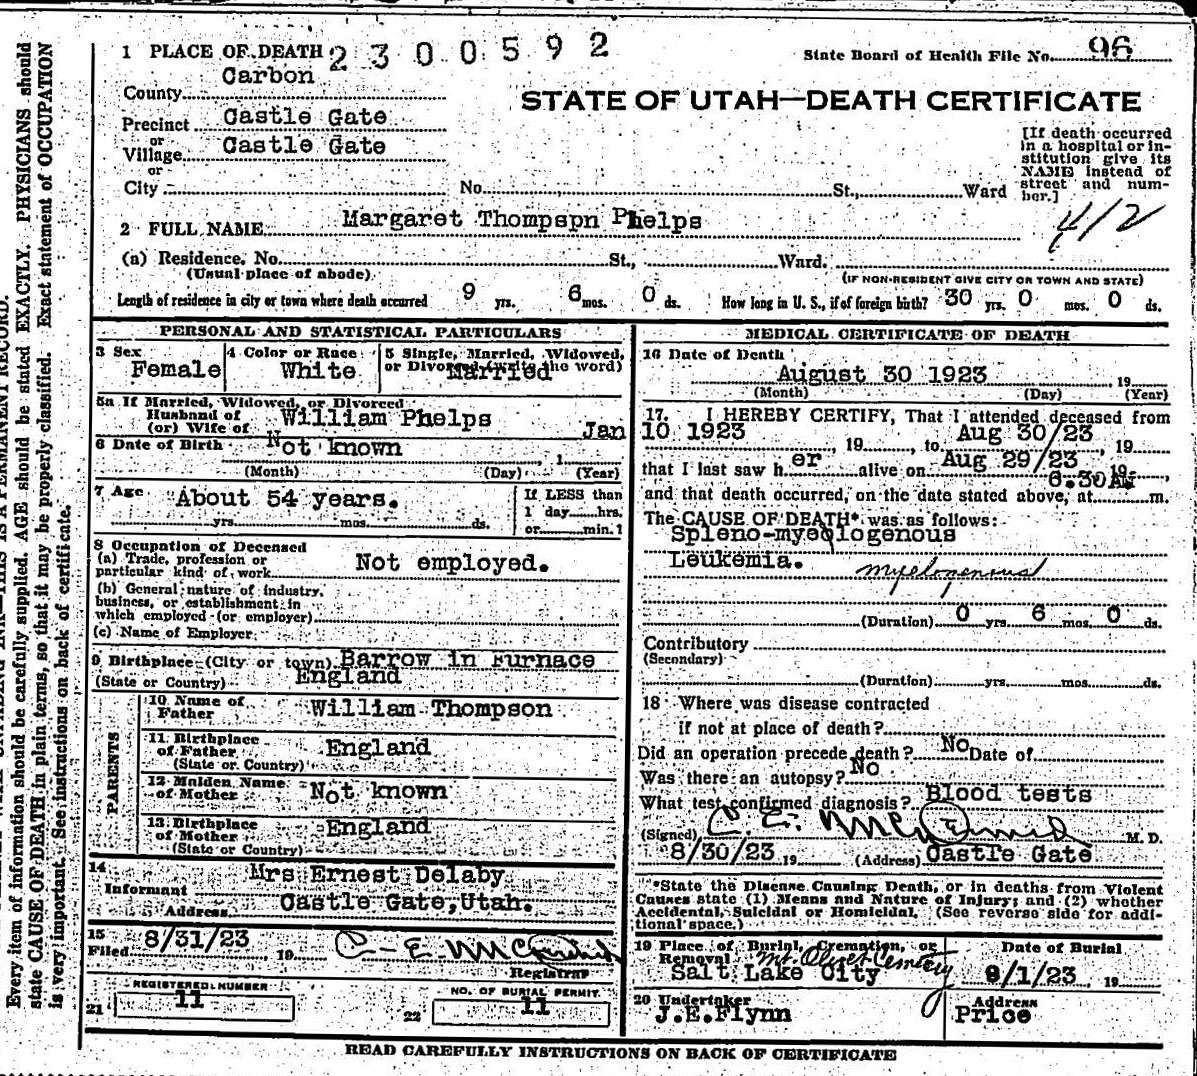 1 PLACE OF DEATH 2300592
State Board of Health File No. 96
County Carbon
STATE OF UTAH—DEATH CERTIFICATE
Precinct Castle Gate
or
Village Castle Gate
or
City No. St., Ward
[If death occurred
in a hospital or in-
stitution give its
NAME instead of
street and num-
ber.]
2 FULL NAME Margaret Thompspn Phelps
(a) Residence. No. St., Ward.
(Usual place of abode)
(IF NON-RESIDENT GIVE CITY OR TOWN AND STATE)
Length of residence in city or town where death occurred 9 yrs. 6 mos. 0 ds. How long in U. S., if of foreign birth? 30 yrs. 0 mos. 0 ds.
PERSONAL AND STATISTICAL PARTICULARS
3 Sex
Female
4 Color or Race
White
5 Single, Married, Widowed,
or Divorced (write the word)
Married
5a If Married, Widowed, or Divorced
Husband of
(or) Wife of William Phelps
6 Date of Birth Not known , 1
(Month) (Day) (Year)
7 Age About 54 years.
yrs. mos. ds.
If LESS than
1 day hrs.
or min.1
8 Occupation of Deceased
(a) Trade, profession or
particular kind of work Not employed.
(b) General nature of industry,
business, or establishment in
which employed (or employer)
(c) Name of Employer
9 Birthplace (City or town) Barrow in Furnace
(State or Country) England
PARENTS
10 Name of
Father William Thompson
11 Birthplace
of Father England
(State or Country)
12 Maiden Name
of Mother Not known
13 Birthplace
of Mother England
(State or Country)
14
Informant Mrs Ernest Delaby
Address Castle Gate, Utah.
15
Filed 8/31/23 19 C. E. McDermid
Registrar
REGISTERED NUMBER
21 11
NO. OF BURIAL PERMIT.
22 11
MEDICAL CERTIFICATE OF DEATH
16 Date of Death
August 30 1923 , 19
(Month) (Day) (Year)
17. I HEREBY CERTIFY, That I attended deceased from
Jan 10 1923 , 19 , to Aug 30/23 , 19
that I last saw her alive on Aug 29/23 , 19
and that death occurred, on the date stated above, at 6.30AM m.
The CAUSE OF DEATH* was as follows:
Spleno-myeologenous
Leukemia. myelogenous
(Duration) 0 yrs 6 mos. 0 ds.
Contributory
(Secondary)
(Duration) yrs. mos. ds.
18 Where was disease contracted
if not at place of death?
Did an operation precede death? No Date of
Was there an autopsy? No
What test confirmed diagnosis? Blood tests
(Signed) C. E. McDermid M. D.
8/30/23 19 (Address) Castle Gate
*State the Disease Causing Death, or in deaths from Violent
Causes state (1) Means and Nature of Injury; and (2) whether
Accidental, Suicidal or Homicidal. (See reverse side for addi-
tional space.)
19 Place of Burial, Cremation, or
Removal Mt. Olivet Cemetery
Salt Lake City
Date of Burial
9/1/23 19
20 Undertaker
J.E.Flynn
Address
Price
READ CAREFULLY INSTRUCTIONS ON BACK OF CERTIFICATE
Every item of information should be carefully supplied. AGE should be stated EXACTLY. PHYSICIANS should
state CAUSE OF DEATH in plain terms, so that it may be properly classified. Exact statement of OCCUPATION
is very important. See instructions on back of certificate.